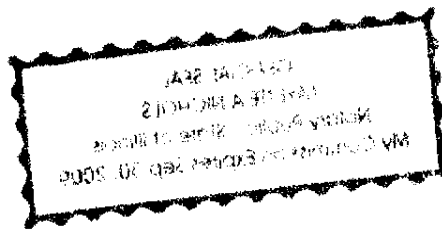 OFFICIAL SEAL
A NICHOLS
Notary Public State of Illinois
My Commission Expires Sep 30, 2009